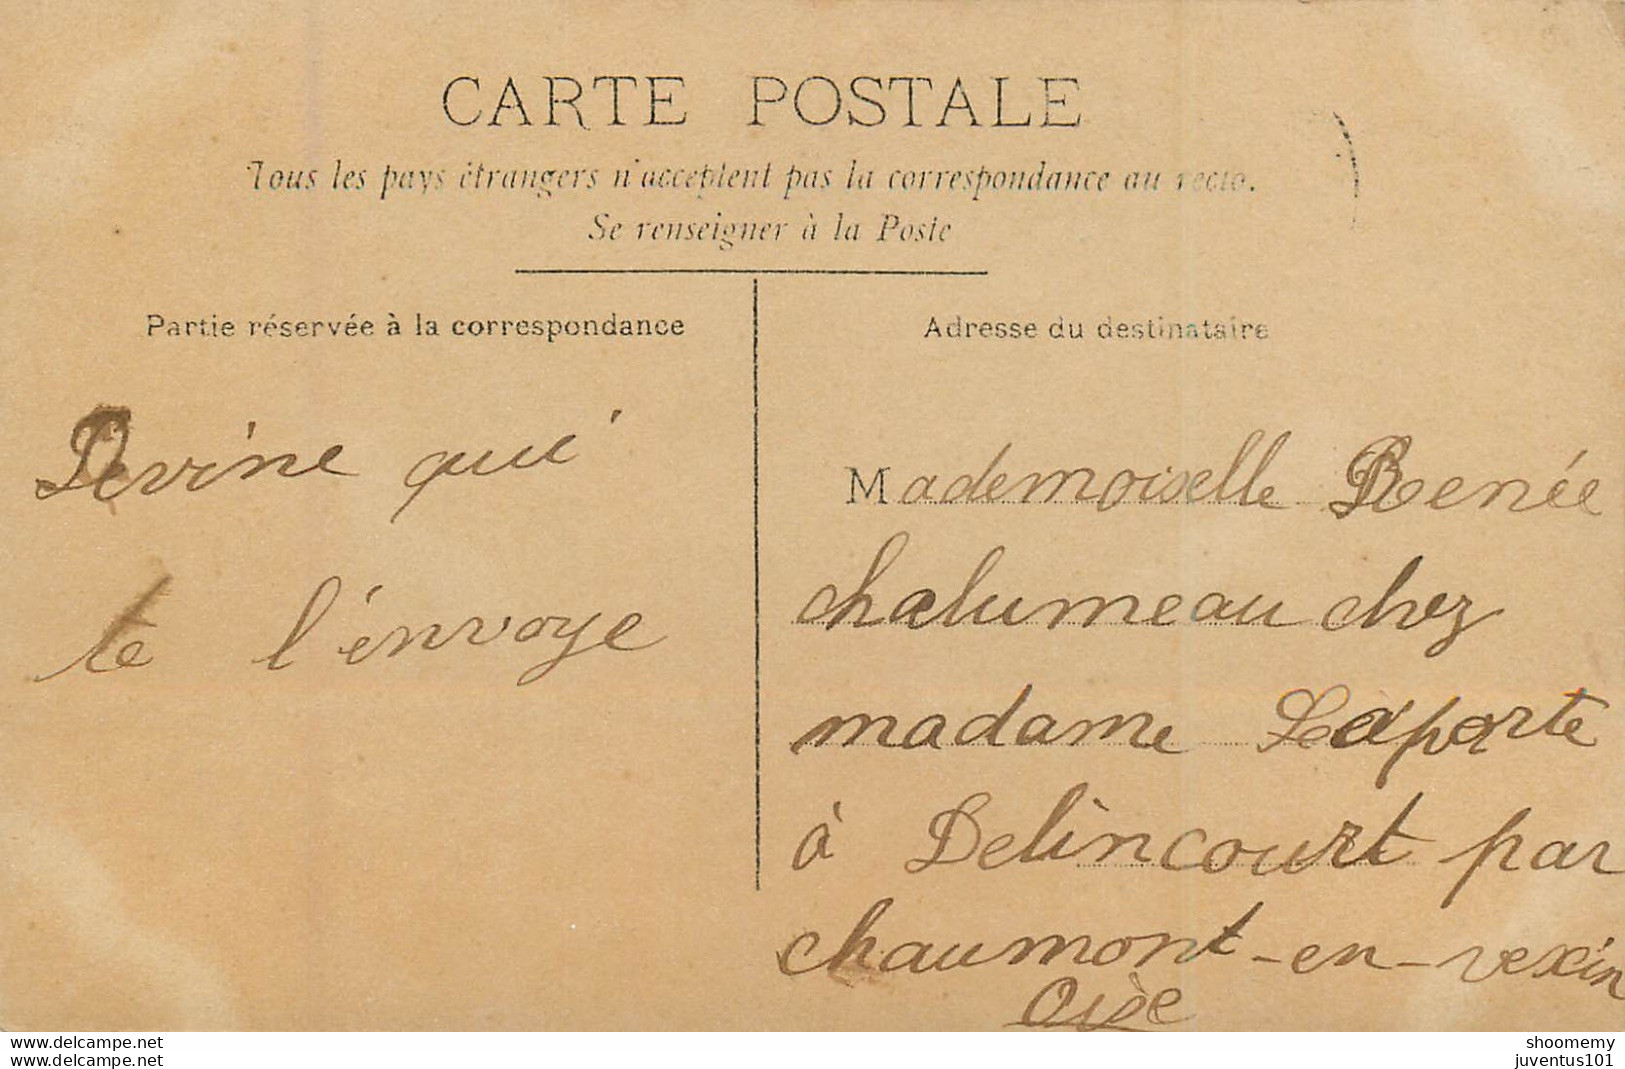 CARTE POSTALE
Tous les pays étrangers n'acceptent pas la correspondance au recto.
Se renseigner à la Poste
Partie réservée à la correspondance
Adresse du destinataire
Devine qui
te l'envoye
Mademoiselle Renée
chalumeau chez
madame Laporte
à Delincourt par
chaumont-en-vexin
Oise
www.delcampe.net
www.delcampe.net
shoomemy
juventus101